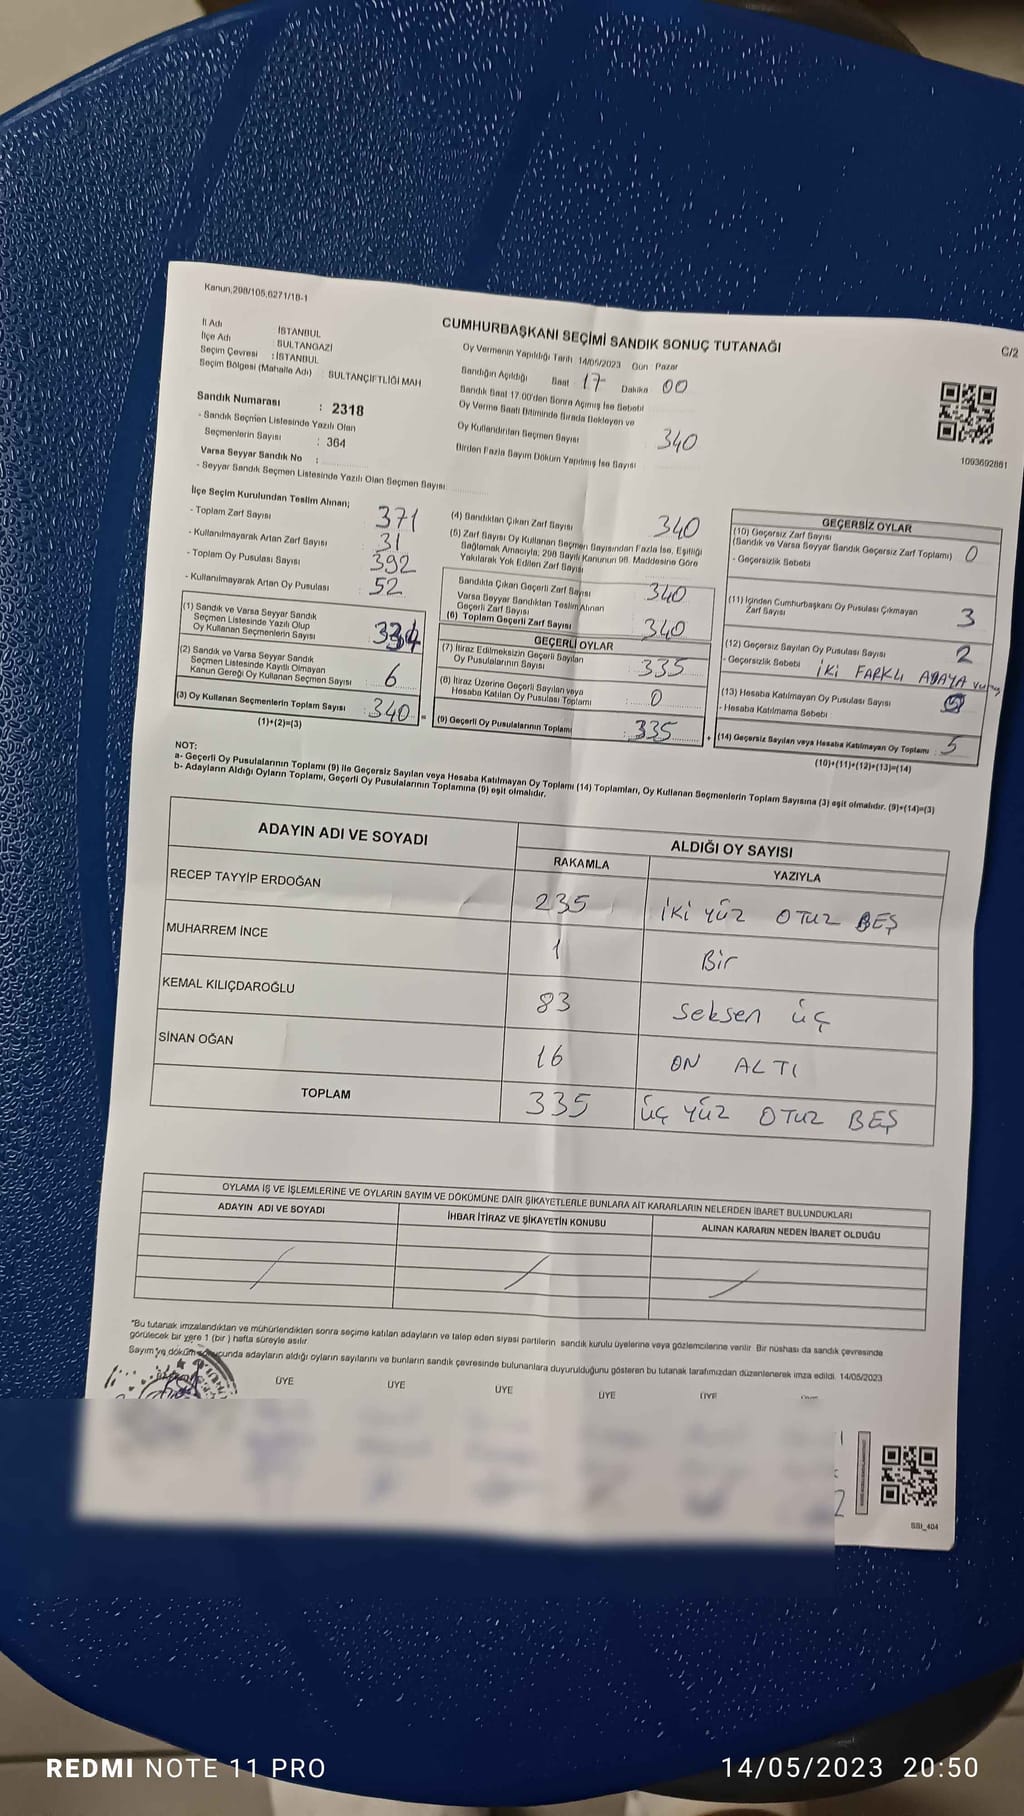 Kanun,298/105,6271/18-1
CUMHURBAŞKANI SEÇİMİ SANDIK SONUÇ TUTANAĞI
C/2
İl Adı : İSTANBUL
İlçe Adı : SULTANGAZİ
Seçim Çevresi : İSTANBUL
Seçim Bölgesi (Mahalle Adı) : SULTANÇİFTLİĞİ MAH
Sandık Numarası : 2318
- Sandık Seçmen Listesinde Yazılı Olan
Seçmenlerin Sayısı : 364
Varsa Seyyar Sandık No :
- Seyyar Sandık Seçmen Listesinde Yazılı Olan Seçmen Sayısı:
Oy Vermenin Yapıldığı Tarih 14/05/2023 Gün Pazar
Sandığın Açıldığı Saat 17 Dakika 00
Sandık Saat 17.00'den Sonra Açımış İse Sebebi
Oy Verme Saati Bitiminde Sırada Bekleyen ve
Oy Kullandırılan Seçmen Sayısı 340
Birden Fazla Sayım Döküm Yapılmış İse Sayısı
1093692861
İlçe Seçim Kurulundan Teslim Alınan;
- Toplam Zarf Sayısı 371
- Kullanılmayarak Artan Zarf Sayısı 31
- Toplam Oy Pusulası Sayısı 392
- Kullanılmayarak Artan Oy Pusulası 52
(1) Sandık ve Varsa Seyyar Sandık
Seçmen Listesinde Yazılı Olup
Oy Kullanan Seçmenlerin Sayısı 334
(2) Sandık ve Varsa Seyyar Sandık
Seçmen Listesinde Kayıtlı Olmayan
Kanun Gereği Oy Kullanan Seçmen Sayısı 6
(3) Oy Kullanan Seçmenlerin Toplam Sayısı 340
(1)+(2)=(3)
(4) Sandıktan Çıkan Zarf Sayısı 340
(5) Zarf Sayısı Oy Kullanan Seçmen Sayısından Fazla İse, Eşitliği
Sağlamak Amacıyla; 298 Sayılı Kanunun 98. Maddesine Göre
Yakılarak Yok Edilen Zarf Sayısı
Sandıkta Çıkan Geçerli Zarf Sayısı 340
Varsa Seyyar Sandıktan Teslim Alınan
Geçerli Zarf Sayısı
(6) Toplam Geçerli Zarf Sayısı 340
GEÇERLİ OYLAR
(7) İtiraz Edilmeksizin Geçerli Sayılan
Oy Pusulalarının Sayısı : 335
(8) İtiraz Üzerine Geçerli Sayılan veya
Hesaba Katılan Oy Pusulası Toplamı : 0
(9) Geçerli Oy Pusulalarının Toplamı : 335
GEÇERSİZ OYLAR
(10) Geçersiz Zarf Sayısı
(Sandık ve Varsa Seyyar Sandık Geçersiz Zarf Toplamı) 0
- Geçersizlik Sebebi
(11) İçinden Cumhurbaşkanı Oy Pusulası Çıkmayan
Zarf Sayısı 3
(12) Geçersiz Sayılan Oy Pusulası Sayısı 2
- Geçersizlik Sebebi İKİ FARKLI ADAYA
(13) Hesaba Katılmayan Oy Pusulası Sayısı
- Hesaba Katılmama Sebebi :
(14) Geçersiz Sayılan veya Hesaba Katılmayan Oy Toplamı : 5
(10)+(11)+(12)+(13)=(14)
NOT:
a- Geçerli Oy Pusulalarının Toplamı (9) ile Geçersiz Sayılan veya Hesaba Katılmayan Oy Toplamı (14) Toplamları, Oy Kullanan Seçmenlerin Toplam Sayısına (3) eşit olmalıdır. (9)+(14)=(3)
b- Adayların Aldığı Oyların Toplamı, Geçerli Oy Pusulalarının Toplamına (9) eşit olmalıdır.
ADAYIN ADI VE SOYADI ALDIĞI OY SAYISI
RAKAMLA YAZIYLA
RECEP TAYYİP ERDOĞAN 235 İKİ YÜZ OTUZ BEŞ
MUHARREM İNCE 1 Bir
KEMAL KILIÇDAROĞLU 83 Seksen üç
SİNAN OĞAN 16 ON ALTI
TOPLAM 335 ÜÇ YÜZ OTUZ BEŞ
OYLAMA İŞ VE İŞLEMLERİNE VE OYLARIN SAYIM VE DÖKÜMÜNE DAİR ŞİKAYETLERLE BUNLARA AİT KARARLARIN NELERDEN İBARET BULUNDUKLARI
ADAYIN ADI VE SOYADI İHBAR İTİRAZ VE ŞİKAYETİN KONUSU ALINAN KARARIN NEDEN İBARET OLDUĞU
*Bu tutanak imzalandıktan ve mühürlendikten sonra seçime katılan adayların ve talep eden siyasi partilerin sandık kurulu üyelerine veya gözlemcilerine verilir. Bir nüshası da sandık çevresinde
görülecek bir yere 1 (bir ) hafta süreyle asılır.
Sayım ve döküm sonucunda adayların aldığı oyların sayılarını ve bunların sandık çevresinde bulunanlara duyurulduğunu gösteren bu tutanak tarafımızdan düzenlenerek imza edildi. 14/05/2023
ÜYE ÜYE ÜYE ÜYE ÜYE
SSI_404
REDMI NOTE 11 PRO
14/05/2023 20:50